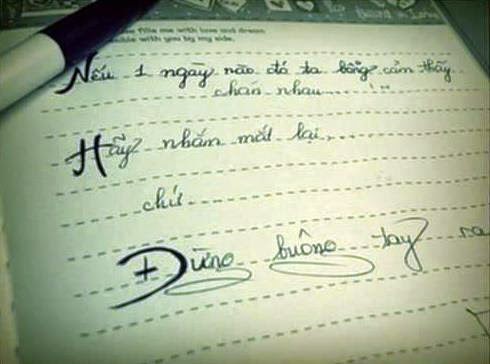 me with love and dream
with you by my side.
Nếu 1 ngày nào đó ta bỗng cảm thấy
chán nhau.....
Hãy nhắm mắt lại....
chứ.....
Đừng buông tay ra